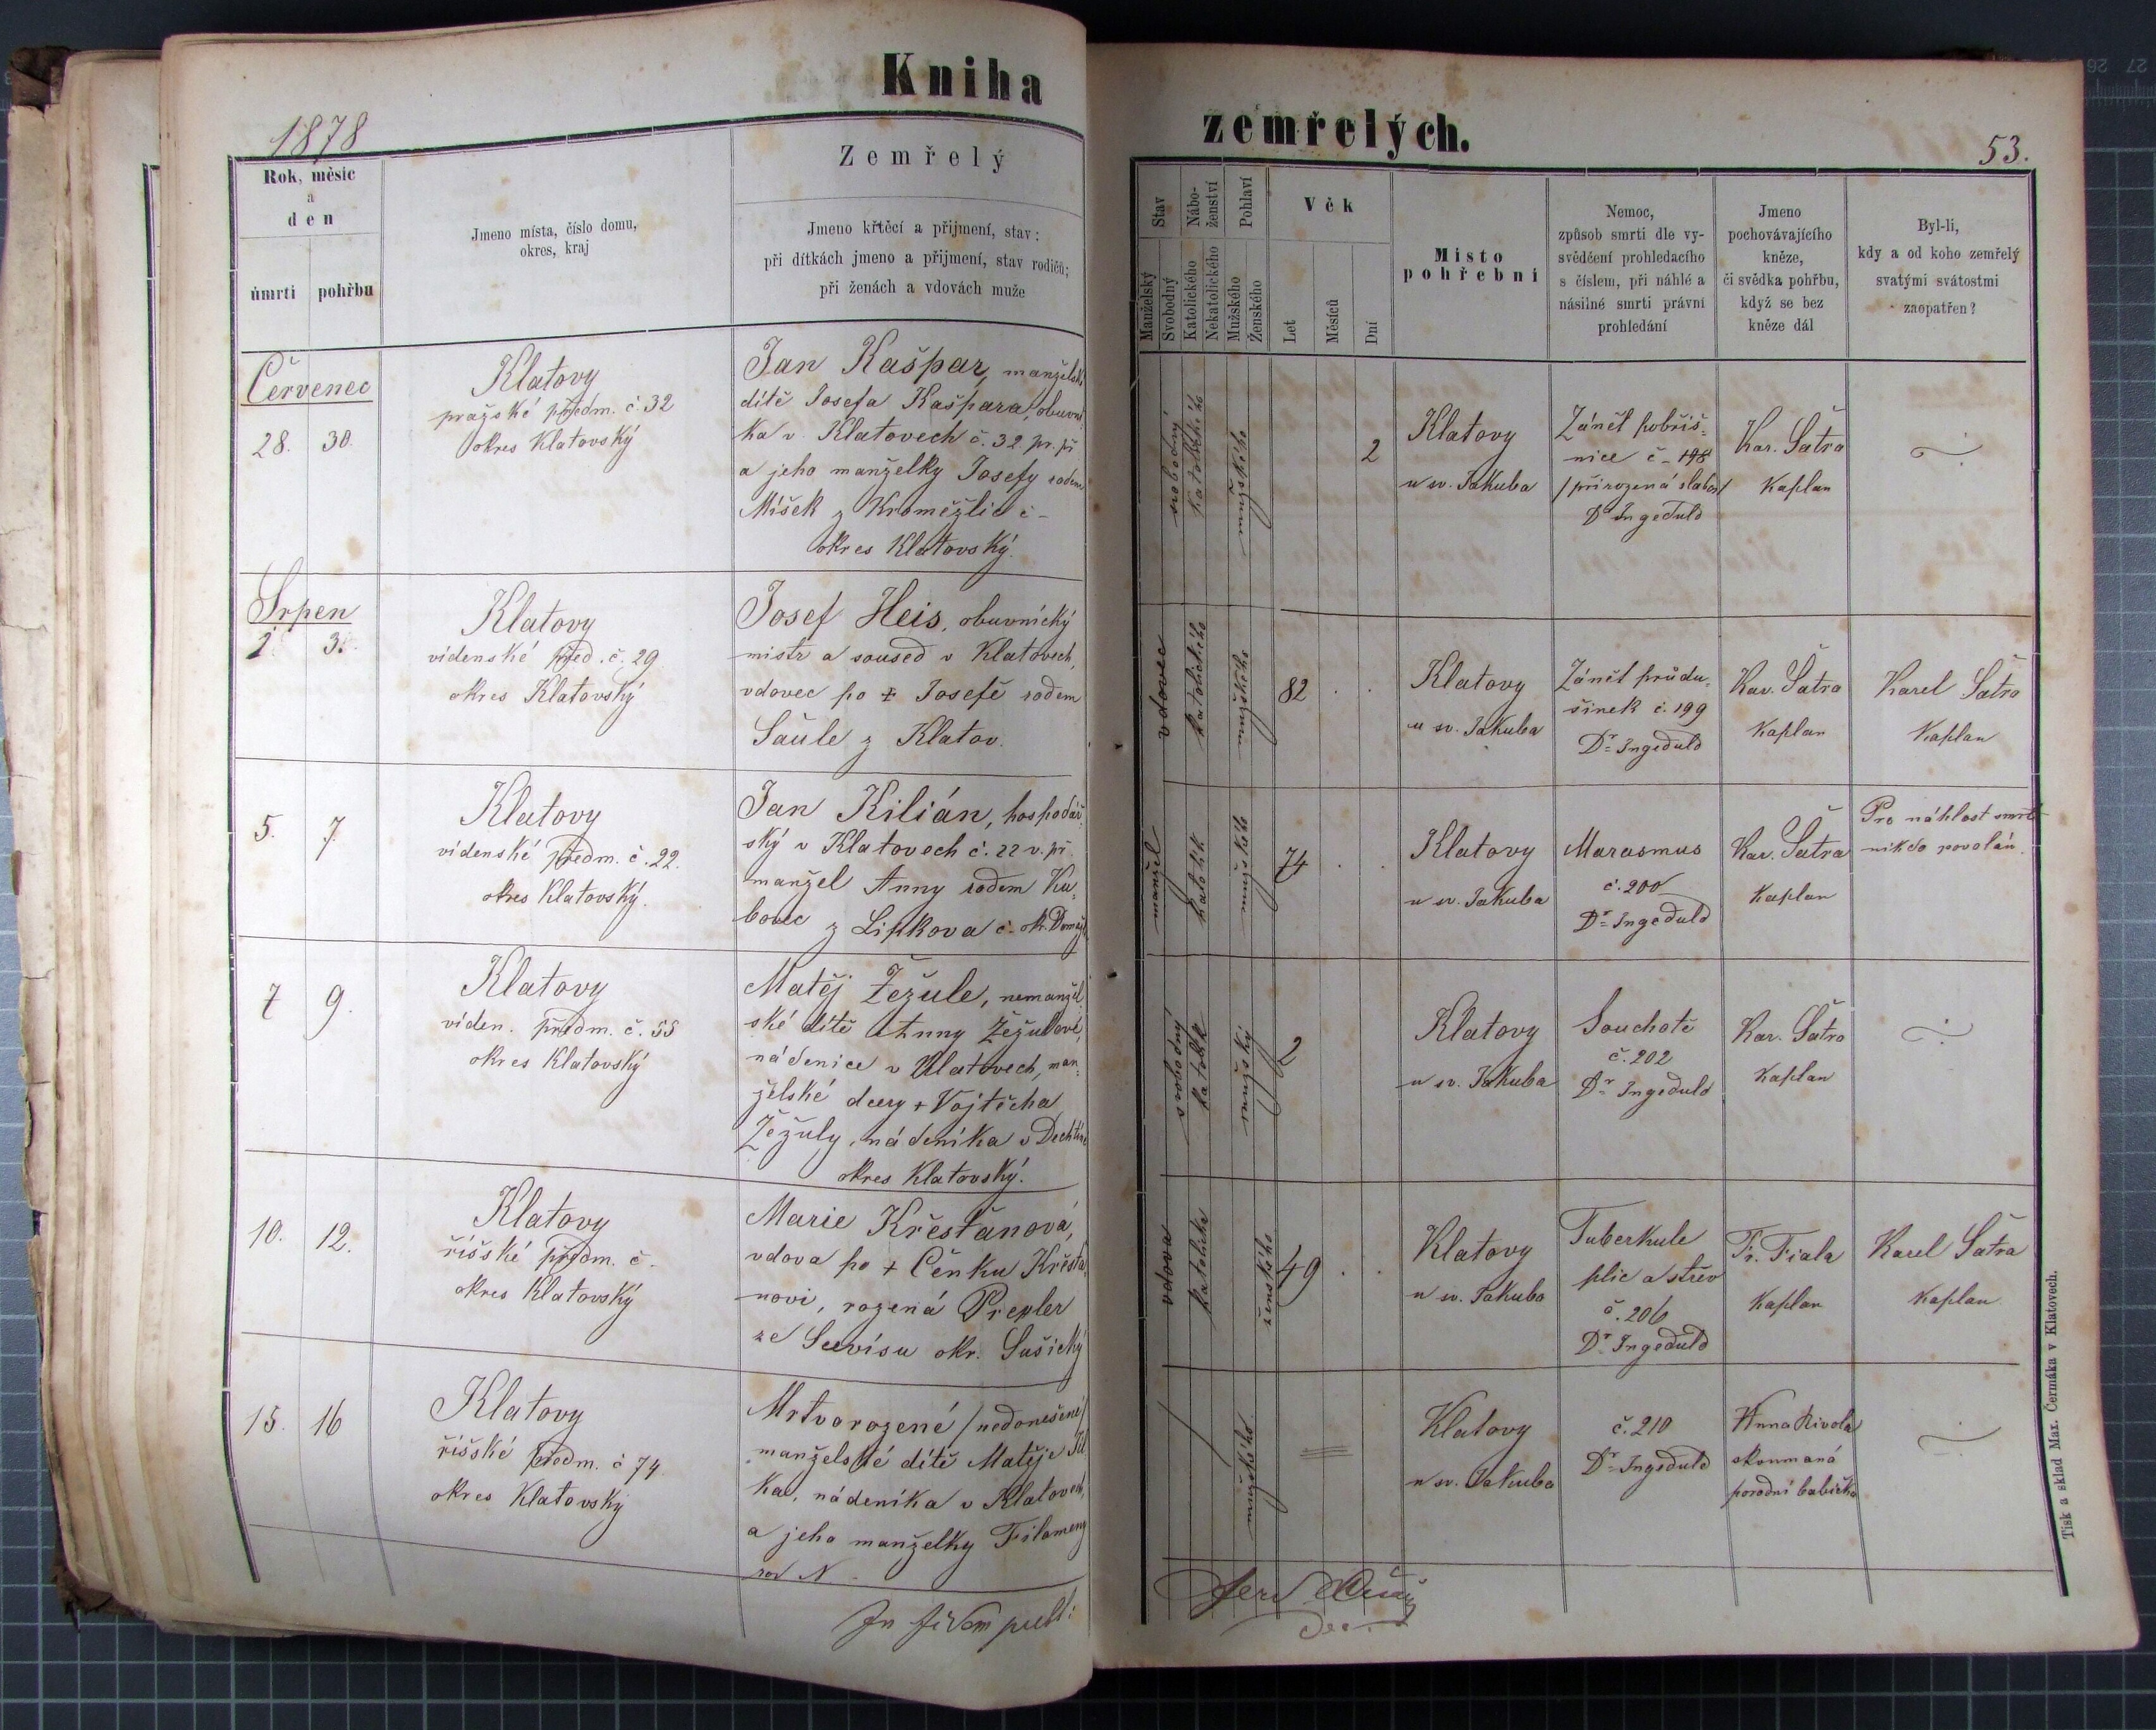 Kniha
1878
Rok, měsíc
a
den
úmrtí
pohřbu
Jmeno místa, číslo domu,
okres, kraj
Zemřelý
Jmeno křtěcí a přijmení, stav;
při dítkách jmeno a přijmení, stav rodičů;
při ženách a vdovách muže
Červenec
28. 30.
Klatovy
pražské předm. č 32
okres Klatovský
Jan Kašpar, manželské
dítě Josefa Kašpara, obuvní
ka v Klatovech č. 32 pr. př
a jeho manželky Josefy rodem
Míšek z Kroměžlic č –
okres Klatovský.
Srpen
1. 3.
Klatovy
videnské před. č. 29
okres Klatovský
Josef Heis, obuvnický
mistr a soused v Klatovech,
vdovec po + Josefě rodem
Šaŭle z Klatov.
5. 7.
Klatovy
videnské předm. č. 22.
okres Klatovský.
Jan Kilián, hospodář-
ský v Klatovech č. 22 v. př.
manžel Anny rodem Ku-
bovec z Lipkova č- ok. Domažl
7 9.
Klatovy
viden. předm. č. 55
okres Klatovský
Matěj Žežule, nemanžel-
ské dítě Anny Žežulové,
nádenice v Klatovech, man-
želské dcery + Vojtěcha
Žežuly, nádeníka v Dechtíně
okres Klatovský.
10. 12.
Klatovy
říšské předm. č.
okres Klatovský
Marie Křesťanová,
vdova po + Čeňku Křesťa-
novi, rozená Prepler
ze Seevisu okr. Sušický
15. 16
Klatovy
říšské předm. č 74.
okres Klatovský
Mrtvorozené /nedonešené/
manželské dítě Matěje
ka, nádeníka v Klatovech,
a jeho manželky Filomeny
rod N.
zemřelých.
53.
Stav
Manželský
Svobodný
Nábo-
ženství
Katolického
Nekatolického
Pohlaví
Mužského
Ženského
Věk
Let
Měsíců
Dní
Místo
pohřební
Nemoc,
způsob smrti dle vy-
svědčení prohledacího
s číslem, při náhlé a
násilné smrti právní
prohledání
Jmeno
pochovávajícího
kněze,
či svědka pohřbu,
když se bez
kněze dál
Byl-li,
kdy a od koho zemřelý
svatými svátostmi
zaopatřen?
svobodný
katolického
mužského
2
Klatovy
u sv. Jakuba
Zánět pobřiš-
nice č – 198
/přirozená slabos/
Dr Ingeduld
Kar. Šatra
Kaplan
vdovec
katolického
mužského
82
Klatovy
u sv. Jakuba
Zánět průdu-
šinek č. 199
Dr Ingeduld
Kar. Šatra
Kaplan
Karel Šatra
Kaplan
manžel
katolík
mužského
74
Klatovy
u sv. Jakuba
Marasmus
č. 200
Dr Ingeduld
Kar. Šatra
Kaplan
Pro náhlost smrti
nikdo povolán.
svobodný
katolík
mužský
2
Klatovy
u sv. Jakuba
Souchotě
č. 202
Dr Ingeduld
Kar. Šatra
Kaplan
vdova
katolička
ženského
49
Klatovy
u sv. Jakuba
Tuberkule
plic a střev
č. 206
Dr Ingeduld
Fr. Fiala
Kaplan
Karel Šatra
Kaplan
mužského
Klatovy
u sv. Jakuba
č. 210
Dr Ingeduld
Anna Rivola
skoumaná
porodní babička
Tisk a sklad Max. Čermáka v Klatovech.